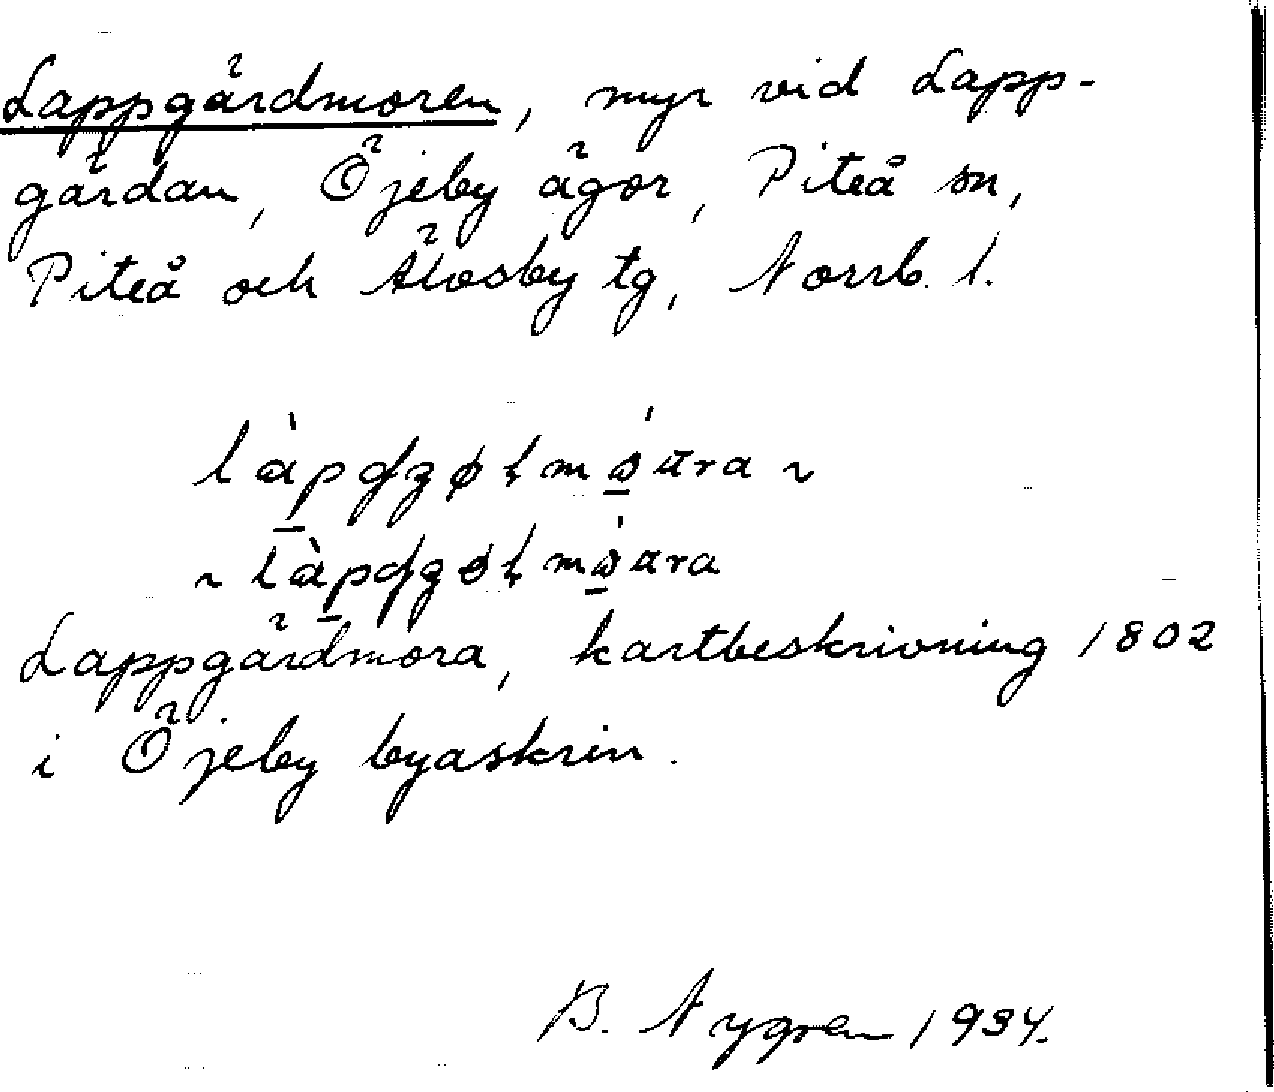 Lappgärdmoren, myr vid Lapp-
gärdan, Öjeby ägor, Piteå sn,
Piteå och Älvsby tg, Norrb. l.
~
~
Lappgärdmora, kartbeskrivning 1802
i Öjeby byaskrin.
B. Nygren 1934.